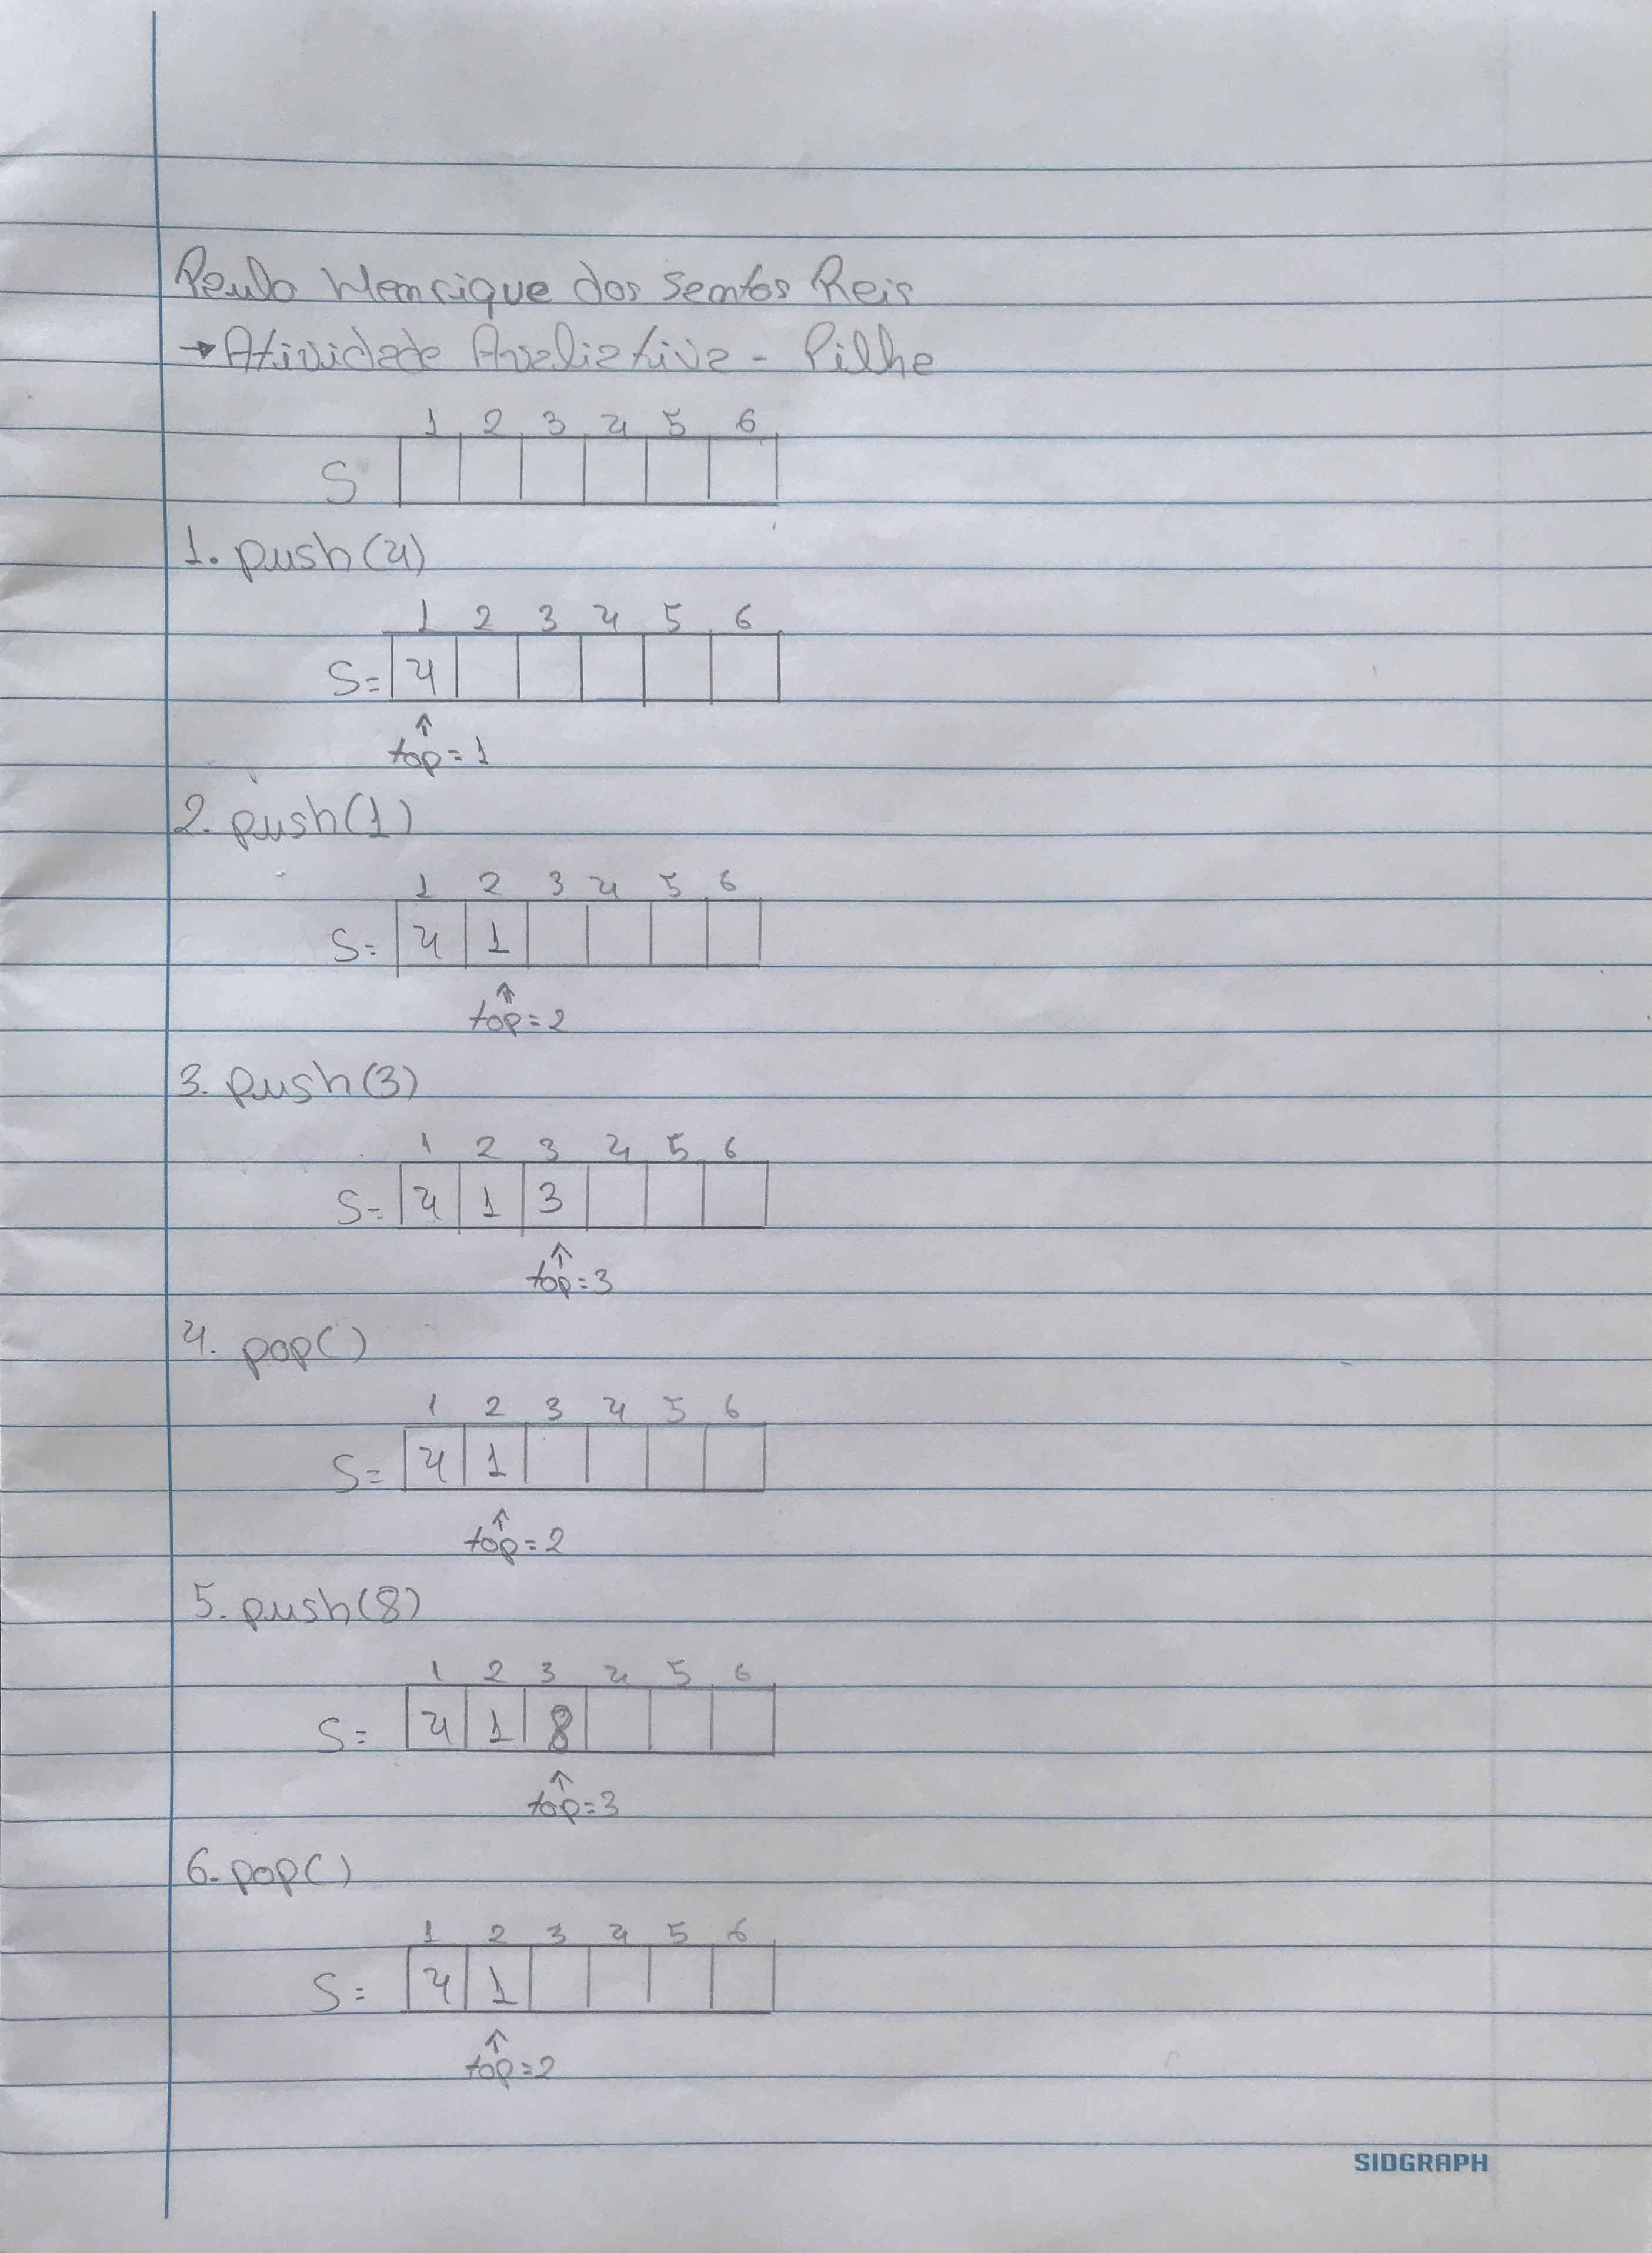 Paulo Henrique dos Santos Reis
→ Atividade Avaliativa - Pilha
1 2 3 4 5 6
S
1. push(4)
1 2 3 4 5 6
S= 4
↑
top = 1
2. push(1)
1 2 3 4 5 6
S= 4 1
↑
top = 2
3. push(3)
1 2 3 4 5 6
S= 4 1 3
↑
top = 3
4. pop()
1 2 3 4 5 6
S= 4 1
↑
top = 2
5. push(8)
1 2 3 4 5 6
S= 4 1 8
↑
top = 3
6. pop()
1 2 3 4 5 6
S= 4 1
↑
top = 2
SIDGRAPH